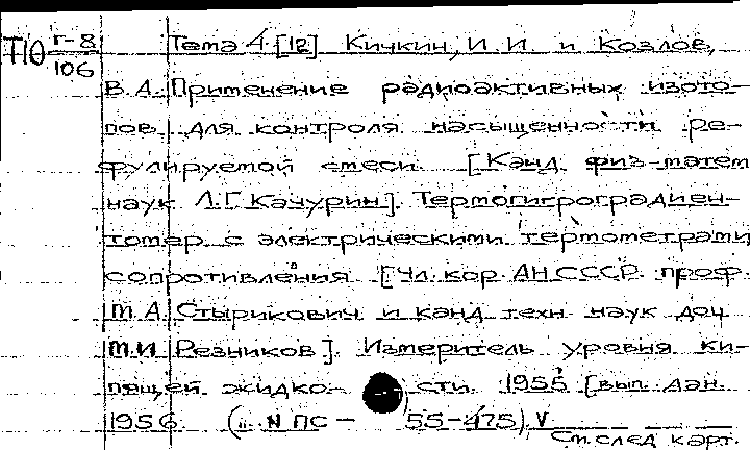 Т10 Г-8 Тема 4 [12] Кичкин, И. И. и Козлов,
106
В. А. Применение радиоактивных изото-
пов для контроля насыщенности ре-
гулируемой смеси [Канд физ-матем
наук Л. Г. Качурин]. Термогигроградиен-
томер с электрическими термометрами
сопротивления [Чл. кор. АН СССР проф.
М. А. Стырикович и канд техн наук доц
М. И. Резников]. Измеритель уровня ки-
пящей жидко- сти 1955 [вып. дан.
1956 ( N ПС - 55-475) V
См. след карт.